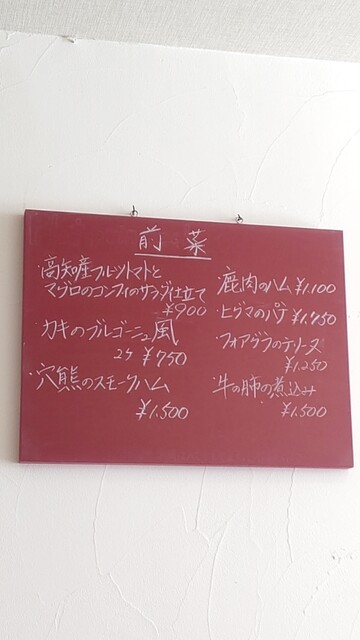 前菜
・高知産フルーツトマトと
マグロのコンフィのサラダ仕立て
¥900
・カキのブルゴーニュ風
2ケ ¥750
・穴熊のスモークハム
¥1.500
・鹿肉のハム ¥1.100
・ヒグマのパテ ¥1.750
・フォアグラのテリーヌ
¥1.250
・牛の肺の煮込み
¥1.500